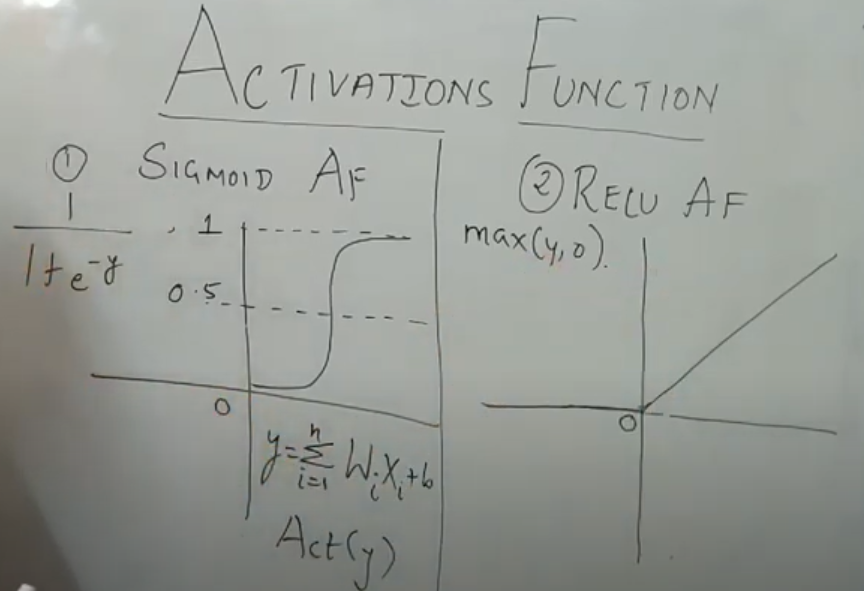 ACTIVATIONS FUNCTION
① SIGMOID AF
1
1+e^-y
1
0.5
0
y=∑ⁿᵢ₌₁ WᵢXᵢ+b
Act(y)
② RELU AF
max(y,0).
0